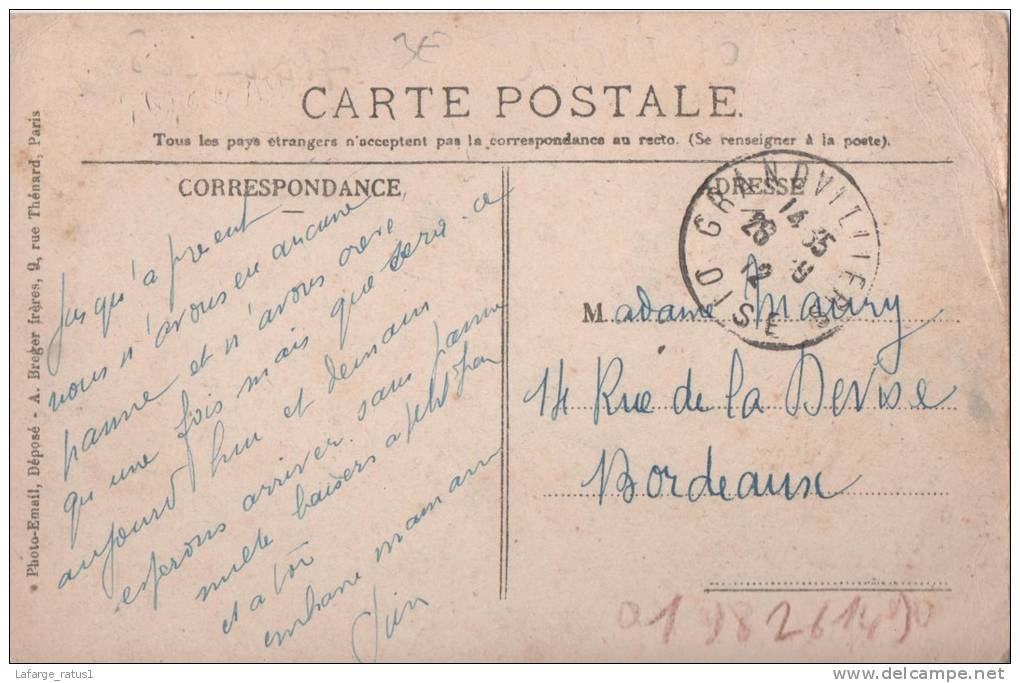 CARTE POSTALE.
Tous les pays étrangers n'acceptent pas la correspondance au recto. (Se renseigner à la poste).
CORRESPONDANCE
Jusqu'a present
nous n'avons eu aucune
panne et n'avons crevé
qu'une fois mais que sera ce
aujourd'hui et demain
esperons arriver sans panne
mille baisers a petit Jean
et a toi
embrasse maman
ADRESSE
GRANDVILLIERS
14 35
26
12
OISE
Madame Maury
14 Rue de la Devise
Bordeaux
Photo-Email, Déposé - A. Breger frères, 9, rue Thénard, Paris
Lafarge_ratus1
www.delcampe.net